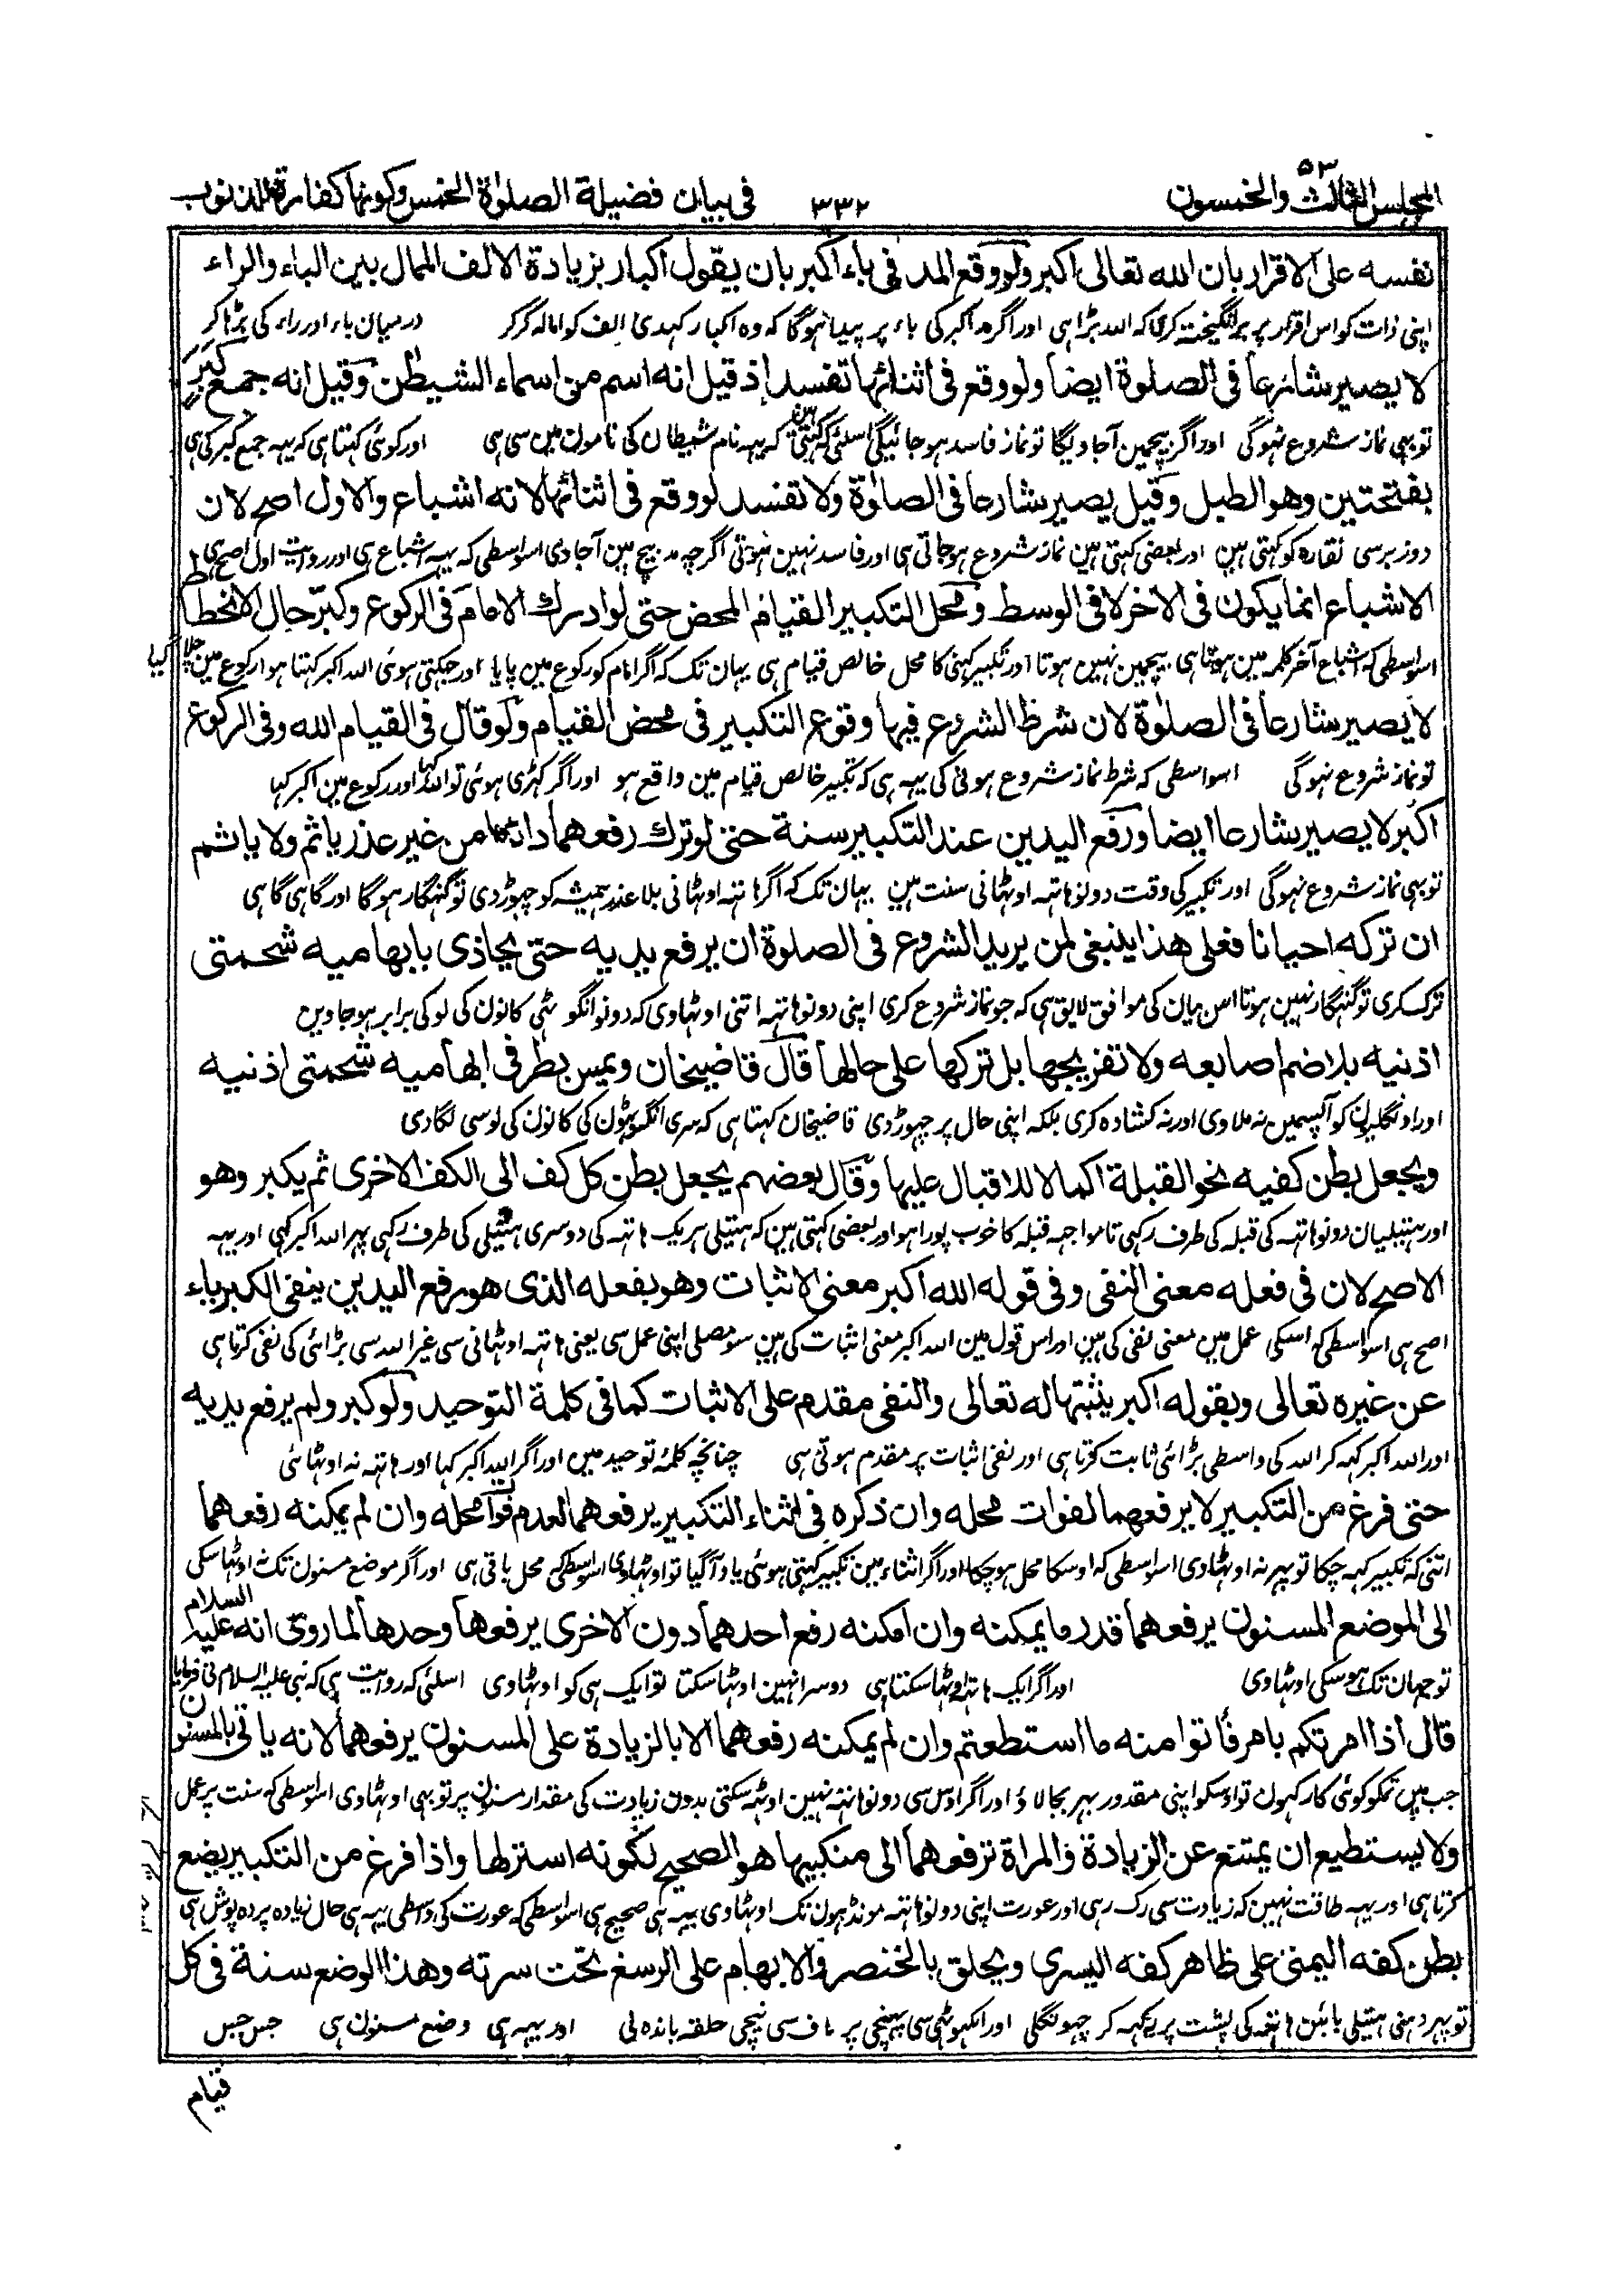 المجلس الثالث والخمسون ٥٣
٣٣٢
فى بيان فضيلة الصلوٰة الخمس وكونها كفارة للذنوب
نفسه على الاقرار بان الله تعالى اكبر ولو وقع المد فى باء اكبر بان يقول اكبار بزيادة الالف الممال بين الباء والراء
اپنی ذات کو اس اقرار پر برانگیختہ کری کہ اللہ بڑا ہی اور اگر مد اکبر کی باء پر پیدا ہوگا کہ وہ اکبار کہدی الف کو امالہ کر کر درمیان باء اور راء کی بڑہا کر
لا يصير شارعا فى الصلوة ايضا ولو وقع فى اثنائها تفسد اذ قيل انه اسم من اسماء الشيطٰن وقيل انه جمع كبر
توبہی نماز شروع نہوگی اور اگر بیچمین آجاویگا تو نماز فاسد ہوجائیگی اسلئی کہ کہتی ہین کہ یہہ نام شیطان کی نامون مین سی ہی اور کوئی کہتا ہی کہ یہہ جمع کبر کی ہی
بفتحتين وهو الطبل وقيل يصير شارعا فى الصلوٰة ولا تفسد لو وقع فى اثنائها لانه اشباع والاول اصح لان
دوزبرسی نقارہ کو کہتی ہین اور بعضی کہتی ہین نماز شروع ہوجاتی ہی اور فاسد نہین ہوتی اگرچہ مد بیچ مین آجاوی اسواسطی کہ یہہ اشباع ہی اور روایت اول اصح ہی
الاشباع انما يكون فى الاخر لا فى الوسط ومحل التكبير القيام المحض حتى لو ادرك الامام فى الركوع وكبر حال الانحطاط
اسواسطی کہ اشباع آخر کلمہ مین ہوتا ہی بیچمین نہین ہوتا اور تکبیر کہنی کا محل خالص قیام ہی یہان تک کہ اگر امام کو رکوع مین پایا اور جہکتی ہوئی اللہ اکبر کہتا ہوا رکوع مین چلا گیا
لا يصير شارعا فى الصلوٰة لان شرط الشروع فيها وقوع التكبير فى محض القيام ولو قال فى القيام الله وفى الركوع
تو نماز شروع نہوگی اسواسطی کہ شرط نماز شروع ہونی کی یہہ ہی کہ تکبیر خالص قیام مین واقع ہو اور اگر کہڑی ہوئی تو اللہ کہا اور رکوع مین اکبر کہا
اكبر لا يصير شارعا ايضا ورفع اليدين عند التكبير سنة حتى لو ترك رفعهما دائما من غير عذر ياثم ولا ياثم
توبہی نماز شروع نہوگی اور تکبیر کی وقت دونو ہاتہہ اوٹہانی سنت ہین یہان تک کہ اگر ہاتہہ اوٹہانی بلا عذر ہمیشہ کو چہوڑ دی تو گنہگار ہوگا اور گاہی گاہی
ان تركه احيانا فعلى هذا ينبغى لمن يريد الشروع فى الصلوة ان يرفع يديه حتى يحاذى بابهاميه شحمتى
ترک کری تو گنہگار نہین ہوتا اس بیان کی موافق لایق ہی کہ جو نماز شروع کری اپنی دونو ہاتہہ اتنی اوٹہاوی کہ دونو انگوٹہی کانون کی لو کی برابر ہوجاوین
اذنيه بلا ضم اصابعه ولا تفريجها بل تركها على حالها قال قاضيخان ويمس بطرفى ابهاميه شحمتى اذنيه
اور اونگلیون کو آپسمین نہ ملاوی اور نہ کشادہ کری بلکہ اپنی حال پر چہوڑ دی قاضیخان کہتا ہی کہ سری انگوٹہون کی کانون کی لوسی لگادی
ويجعل بطن كفيه نحو القبلة اكمالا للاقبال عليها وقال بعضهم يجعل بطن كل كف الى الكف الاخرى ثم يكبر وهو
اور ہتیلیان دونو ہاتہہ کی قبلہ کی طرف رکہی تا مواجہہ قبلہ کا خوب پورا ہو اور بعضی کہتی ہین کہ ہتیلی ہر یک ہاتہہ کی دوسری ہتیلی کی طرف رکہی پہر اللہ اکبر کہی اور یہہ
الاصح لان فى فعله معنى النفى وفى قوله الله اكبر معنى الاثبات وهو بفعله الذى هو رفع اليدين ينفى الكبرياء
اصح ہی اسواسطی کہ اسکی عمل مین معنی نفی کی ہین اور اس قول مین اللہ اکبر معنی اثبات کی ہین سو مصلی اپنی عمل سی یعنی ہاتہہ اوٹہانی سی غیر اللہ سی بڑائی کی نفی کرتا ہی
عن غيره تعالى وبقوله اكبر يثبتها له تعالى والنفى مقدم على الاثبات كما فى كلمة التوحيد ولو كبر ولم يرفع يديه
اور اللہ اکبر کہہ کر اللہ کی واسطی بڑائی ثابت کرتا ہی اور نفی اثبات پر مقدم ہوتی ہی چنانچہ کلمۂ توحید مین اور اگر اللہ اکبر کہا اور ہاتہہ نہ اوٹہائی
حتى فرغ من التكبير لا يرفعهما لفوات محله وان ذكره فى اثناء التكبير يرفعهما لعدم فوات محله وان لم يمكنه رفعهما
اتنی کہ تکبیر کہہ چکا تو پہر نہ اوٹہاوی اسواسطی کہ اوسکا محل ہوچکا اور اگر اثناء مین تکبیر کہتی ہوئی یاد آگیا تو اوٹہاوی اسواسطی کہ محل باقی ہی اور اگر موضع مسنون تک نہ اوٹہاسکی
الى الموضع المسنون يرفعهما قدر ما يمكنه وان امكنه رفع احدهما دون الاخرى يرفعها وحدها لما روى انه عليه السلام
تو جہان تک ہوسکی اوٹہاوی اور اگر ایک ہاتہہ اوٹہا سکتا ہی دوسرا نہین اوٹہا سکتا تو ایک ہی کو اوٹہاوی اسلئی کہ روایت ہی کہ نبی علیہ السلام نی فرمایا
قال اذا امرتكم بامر فأتوا منه ما استطعتم وان لم يمكنه رفعهما الا بالزيادة على المسنون يرفعهما لانه ياتى بالمسنون
جب مین تمکو کوئی کار کہون تو اوسکو اپنی مقدور بہر بجا لاؤ اور اگر اوس سی دونو ہاتہہ نہین اوٹہہ سکتی بدون زیادت کی مقدار مسنون پر توبہی اوٹہاوی اسواسطی کہ سنت پر عمل
ولا يستطيع ان يمتنع عن الزيادة والمراة ترفعهما الى منكبيها هو الصحيح لكونه استر لها واذا فرغ من التكبير يضع
کرتا ہی اور یہہ طاقت نہین کہ زیادت سی رک رہی اور عورت اپنی دونو ہاتہہ مونڈہون تک اوٹہاوی یہہ ہی صحیح ہی اسواسطی کہ عورت کی واسطی یہہ ہی حال زیادہ پردہ پوش ہی
بطن كفه اليمنى على ظاهر كفه اليسرى ويحلق بالخنصر والابهام على الرسغ تحت سرته وهذا الوضع سنة فى كل
تو پہر دہنی ہتیلی بائین ہاتہہ کی پشت پر رکہہ کر چہونگلی اور انگہوٹہی سی پہنچی پر ناف سی نیچی حلقہ باندہ لی اور یہہ ہی وضع مسنون ہی جس جس
قیام